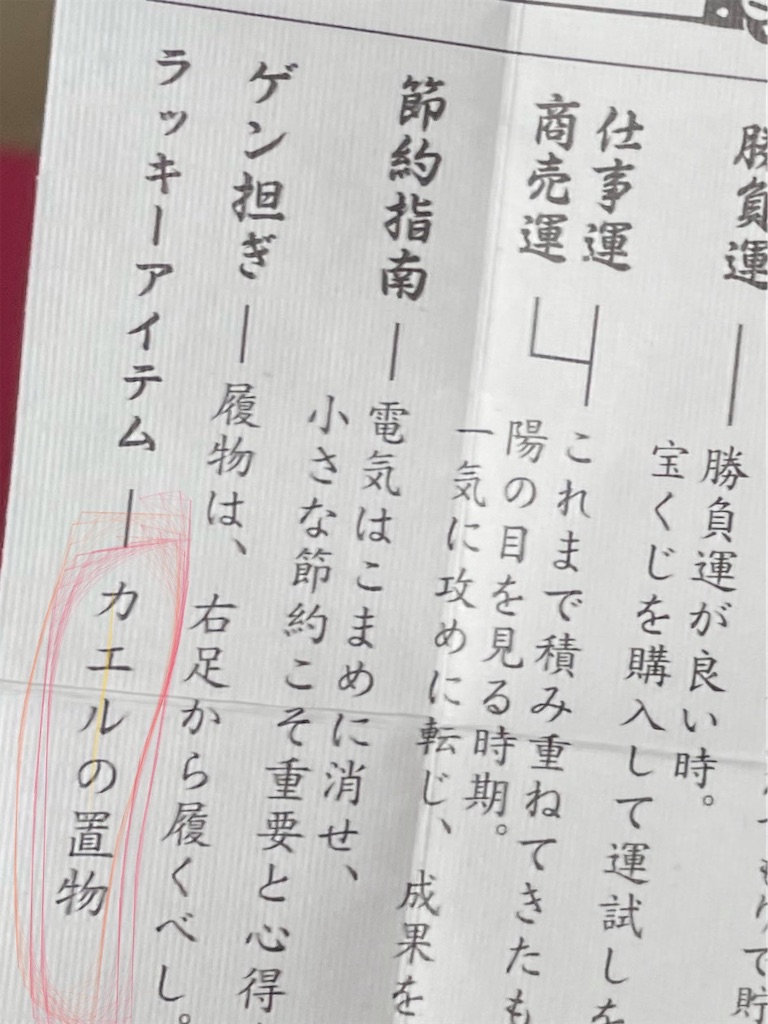 勝負運
勝負運が良い時。
宝くじを購入して運試しを
仕事運
商売運
これまで積み重ねてきたも
陽の目を見る時期。
一気に攻めに転じ、成果を
節約指南
電気はこまめに消せ、
小さな節約こそ重要と心得
ゲン担ぎ
履物は、右足から履くべし。
ラッキーアイテム
カエルの置物